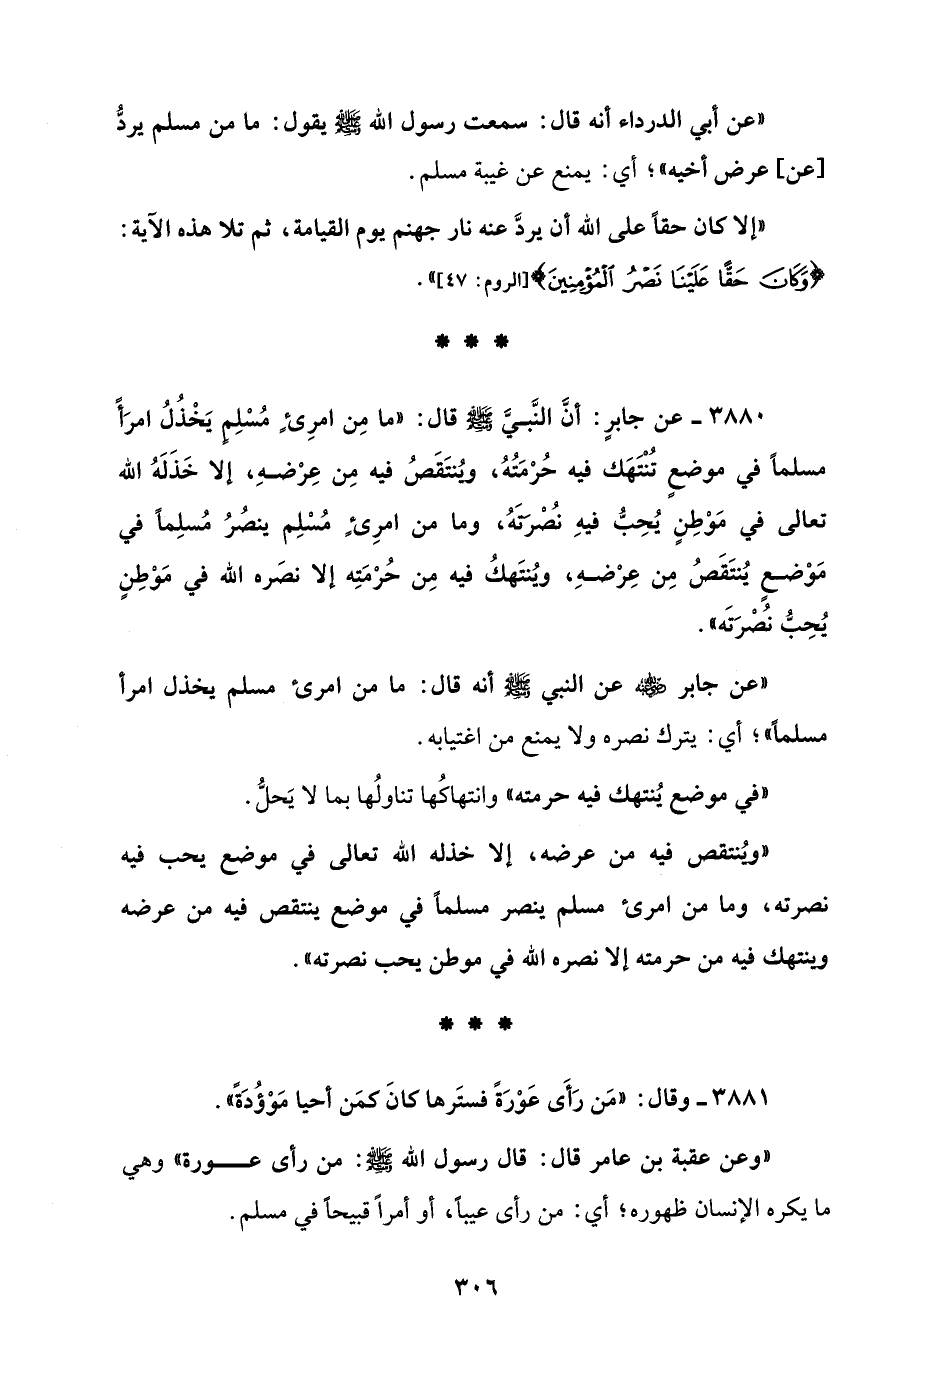 «عن أبي الدرداء أنه قال: سمعت رسول الله ﷺ يقول: ما من مسلم يردُّ
[عن] عرض أخيه»؛ أي: يمنع عن غيبة مسلم.
«إلا كان حقاً على الله أن يردَّ عنه نار جهنم يوم القيامة، ثم تلا هذه الآية:
﴿وَكَانَ حَقًّا عَلَيْنَا نَصْرُ ٱلْمُؤْمِنِينَ﴾[الروم: ٤٧]».
* * *
٣٨٨٠ ـ عن جابرٍ: أنَّ النَّبيَّ ﷺ قال: «ما مِن امرِئٍ مُسْلِمٍ يَخْذُلُ امرَأً
مسلماً في موضعٍ تُنْتَهَك فيه حُرْمَتُهُ، ويُنتَقَصُ فيه مِن عِرْضهِ، إلا خَذَلَهُ الله
تعالى في مَوْطِنٍ يُحِبُّ فيهِ نُصْرَتَهُ، وما من امرِئٍ مُسْلِم ينصُرُ مُسلِماً في
مَوْضعٍ يُنتَقَصُ مِن عِرْضهِ، ويُنتَهكُ فيه مِن حُرْمَتِه إلا نصَره الله في مَوْطِنٍ
يُحِبُّ نُصْرَتَه».
«عن جابر ﵁ عن النبي ﷺ أنه قال: ما من امرئ مسلم يخذل امرأ
مسلماً»؛ أي: يترك نصره ولا يمنع من اغتيابه.
«في موضع يُنتهك فيه حرمته» وانتهاكُها تناولُها بما لا يَحلُّ.
«ويُنتقص فيه من عرضه، إلا خذله الله تعالى في موضع يحب فيه
نصرته، وما من امرئ مسلم ينصر مسلماً في موضع ينتقص فيه من عرضه
وينتهك فيه من حرمته إلا نصره الله في موطن يحب نصرته».
* * *
٣٨٨١ ـ وقال: «مَن رَأَى عَوْرَةً فستَرها كانَ كمَن أحيا مَوْؤُدَةً».
«وعن عقبة بن عامر قال: قال رسول الله ﷺ: من رأى عـــورة» وهي
ما يكره الإنسان ظهوره؛ أي: من رأى عيباً، أو أمراً قبيحاً في مسلم.
٣٠٦